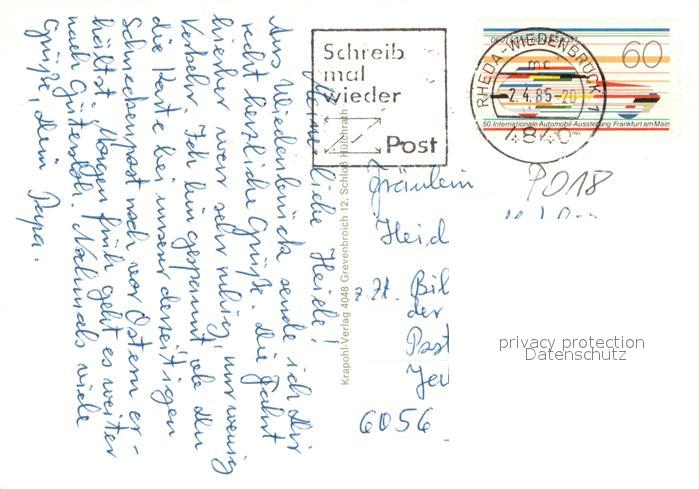 Meine liebe Heidi!
Aus Wiedenbrück sende ich Dir
recht herzliche Grüße. Die Fahrt
hierher war sehr ruhig, nur wenig
Verkehr. Ich bin gespannt ob Du
die Karte bei unserer derzeitigen
Schneckenpost noch vor Ostern er-
hältst. Morgen früh geht es weiter
nach Gütersloh. Nochmals viele
Grüße, Dein Papa.
Krapohl-Verlag 4048 Grevenbroich 12, Schloß Hülchrath
Schreib
mal
wieder
Post
DEUTSCHE BUNDESPOST
60
50. Internationale Automobil-Ausstellung Frankfurt am Main
RHEDA-WIEDENBRÜCK 1
mc
2.4.85-20
4840
P018
Fräulein
Heid
z. Zt. Bil
der
Post
6056
privacy protection
Datenschutz